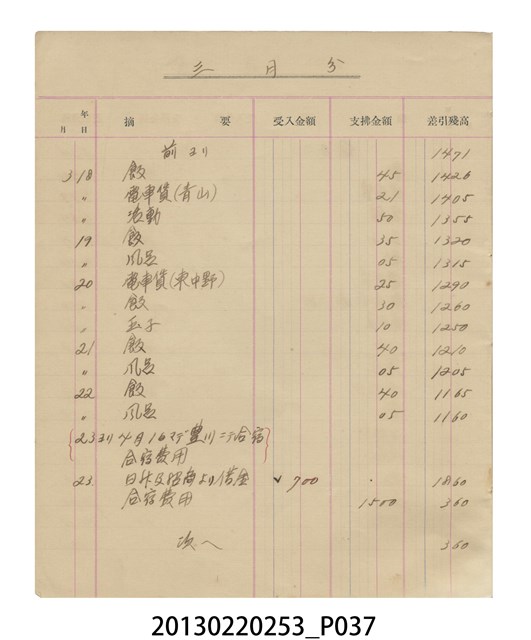 三月分
年 月 日 摘要 受入金額 支拂金額 差引残高
前より 1471
3 18 飯 45 1426
〃 電車賃(青山) 21 1405
〃 活動 50 1355
19 飯 35 1320
〃 風呂 05 1315
20 電車賃(東中野) 25 1290
〃 飯 30 1260
〃 玉子 10 1250
21 飯 40 1210
〃 風呂 05 1205
22 飯 40 1165
〃 風呂 05 1160
23ヨリ4月16マデ豊川ニテ合宿
合宿費用
23. より借金 700 1860
合宿費用 1500 360
次へ 360
20130220253_P037